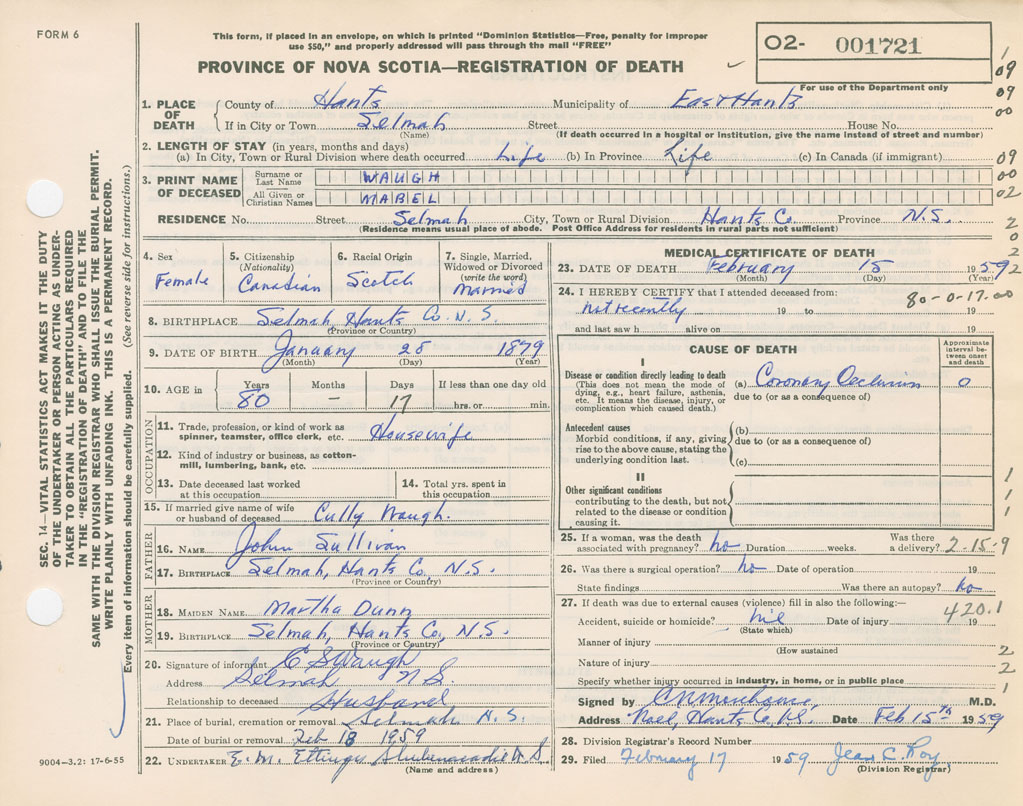 FORM 6
This form, if placed in an envelope, on which is printed "Dominion Statistics—Free, penalty for improper
use $50," and properly addressed will pass through the mail "FREE"
PROVINCE OF NOVA SCOTIA—REGISTRATION OF DEATH
02- 001721
For use of the Department only
1
09
09
00
1. PLACE OF DEATH County of Hants Municipality of East Hants
If in City or Town Selmah Street House No.
(Name) (If death occurred in a hospital or institution, give the name instead of street and number)
2. LENGTH OF STAY (in years, months and days)
(a) In City, Town or Rural Division where death occurred Life (b) In Province Life (c) In Canada (if immigrant) 09
3. PRINT NAME OF DECEASED Surname or Last Name WAUGH 00
All Given or Christian Names MABEL 02
RESIDENCE No. Street Selmah City, Town or Rural Division Hants Co. Province N.S. 2
(Residence means usual place of abode. Post Office Address for residents in rural parts not sufficient) 0
2
4. Sex Female
5. Citizenship (Nationality) Canadian
6. Racial Origin Scotch
7. Single, Married, Widowed or Divorced (write the word) Married
8. BIRTHPLACE Selmah, Hants Co. N.S.
(Province or Country)
9. DATE OF BIRTH January 28 1879
(Month) (Day) (Year)
10. AGE in Years 80 Months – Days 17 If less than one day old hrs. or min.
OCCUPATION
11. Trade, profession, or kind of work as spinner, teamster, office clerk, etc. Housewife
12. Kind of industry or business, as cotton-mill, lumbering, bank, etc.
13. Date deceased last worked at this occupation
14. Total yrs. spent in this occupation
15. If married give name of wife or husband of deceased Cully Waugh.
FATHER
16. NAME John Sullivan
17. BIRTHPLACE Selmah, Hants Co. N.S.
(Province or Country)
MOTHER
18. MAIDEN NAME Martha Dunn
19. BIRTHPLACE Selmah, Hants Co, N.S.
(Province or Country)
20. Signature of informant C S Waugh
Address Selmah N.S.
Relationship to deceased Husband
21. Place of burial, cremation or removal Selmah N.S.
Date of burial or removal Feb 18 1959
22. UNDERTAKER E. M. Ettinger Shubenacadie N S.
(Name and address)
MEDICAL CERTIFICATE OF DEATH
23. DATE OF DEATH February 15 1959 2
(Month) (Day) (Year)
24. I HEREBY CERTIFY that I attended deceased from: 80-0-17.00
not recently 19 to 19
and last saw h alive on 19
CAUSE OF DEATH
Approximate interval between onset and death
I
Disease or condition directly leading to death (a) Coronary Occlusion 0
(This does not mean the mode of dying, e.g., heart failure, asthenia, etc. It means the disease, injury, or complication which caused death.) due to (or as a consequence of)
Antecedent causes (b)
Morbid conditions, if any, giving rise to the above cause, stating the underlying condition last. due to (or as a consequence of)
(c)
II
Other significant conditions
contributing to the death, but not related to the disease or condition causing it.
1
1
1
25. If a woman, was the death associated with pregnancy? no Duration weeks. Was there a delivery? 2-15-9
26. Was there a surgical operation? no Date of operation 19
State findings Was there an autopsy? no
27. If death was due to external causes (violence) fill in also the following:— 420.1
Accident, suicide or homicide? nil Date of injury 19
(State which)
Manner of injury
(How sustained 2
Nature of injury 2
Specify whether injury occurred in industry, in home, or in public place 1
Signed by M.D.
Address Noel, Hants Co, N.S. Date Feb 15th 1959
28. Division Registrar's Record Number
29. Filed February 17 1959 Jean C. Roy
(Division Registrar)
SEC. 14—VITAL STATISTICS ACT MAKES IT THE DUTY
OF THE UNDERTAKER OR PERSON ACTING AS UNDER-
TAKER TO OBTAIN ALL THE PARTICULARS REQUIRED
IN THE "REGISTRATION OF DEATH" AND TO FILE THE
SAME WITH THE DIVISION REGISTRAR WHO SHALL ISSUE THE BURIAL PERMIT.
WRITE PLAINLY WITH UNFADING INK. THIS IS A PERMANENT RECORD.
Every item of information should be carefully supplied. (See reverse side for instructions.)
9004—3.2: 17-6-55